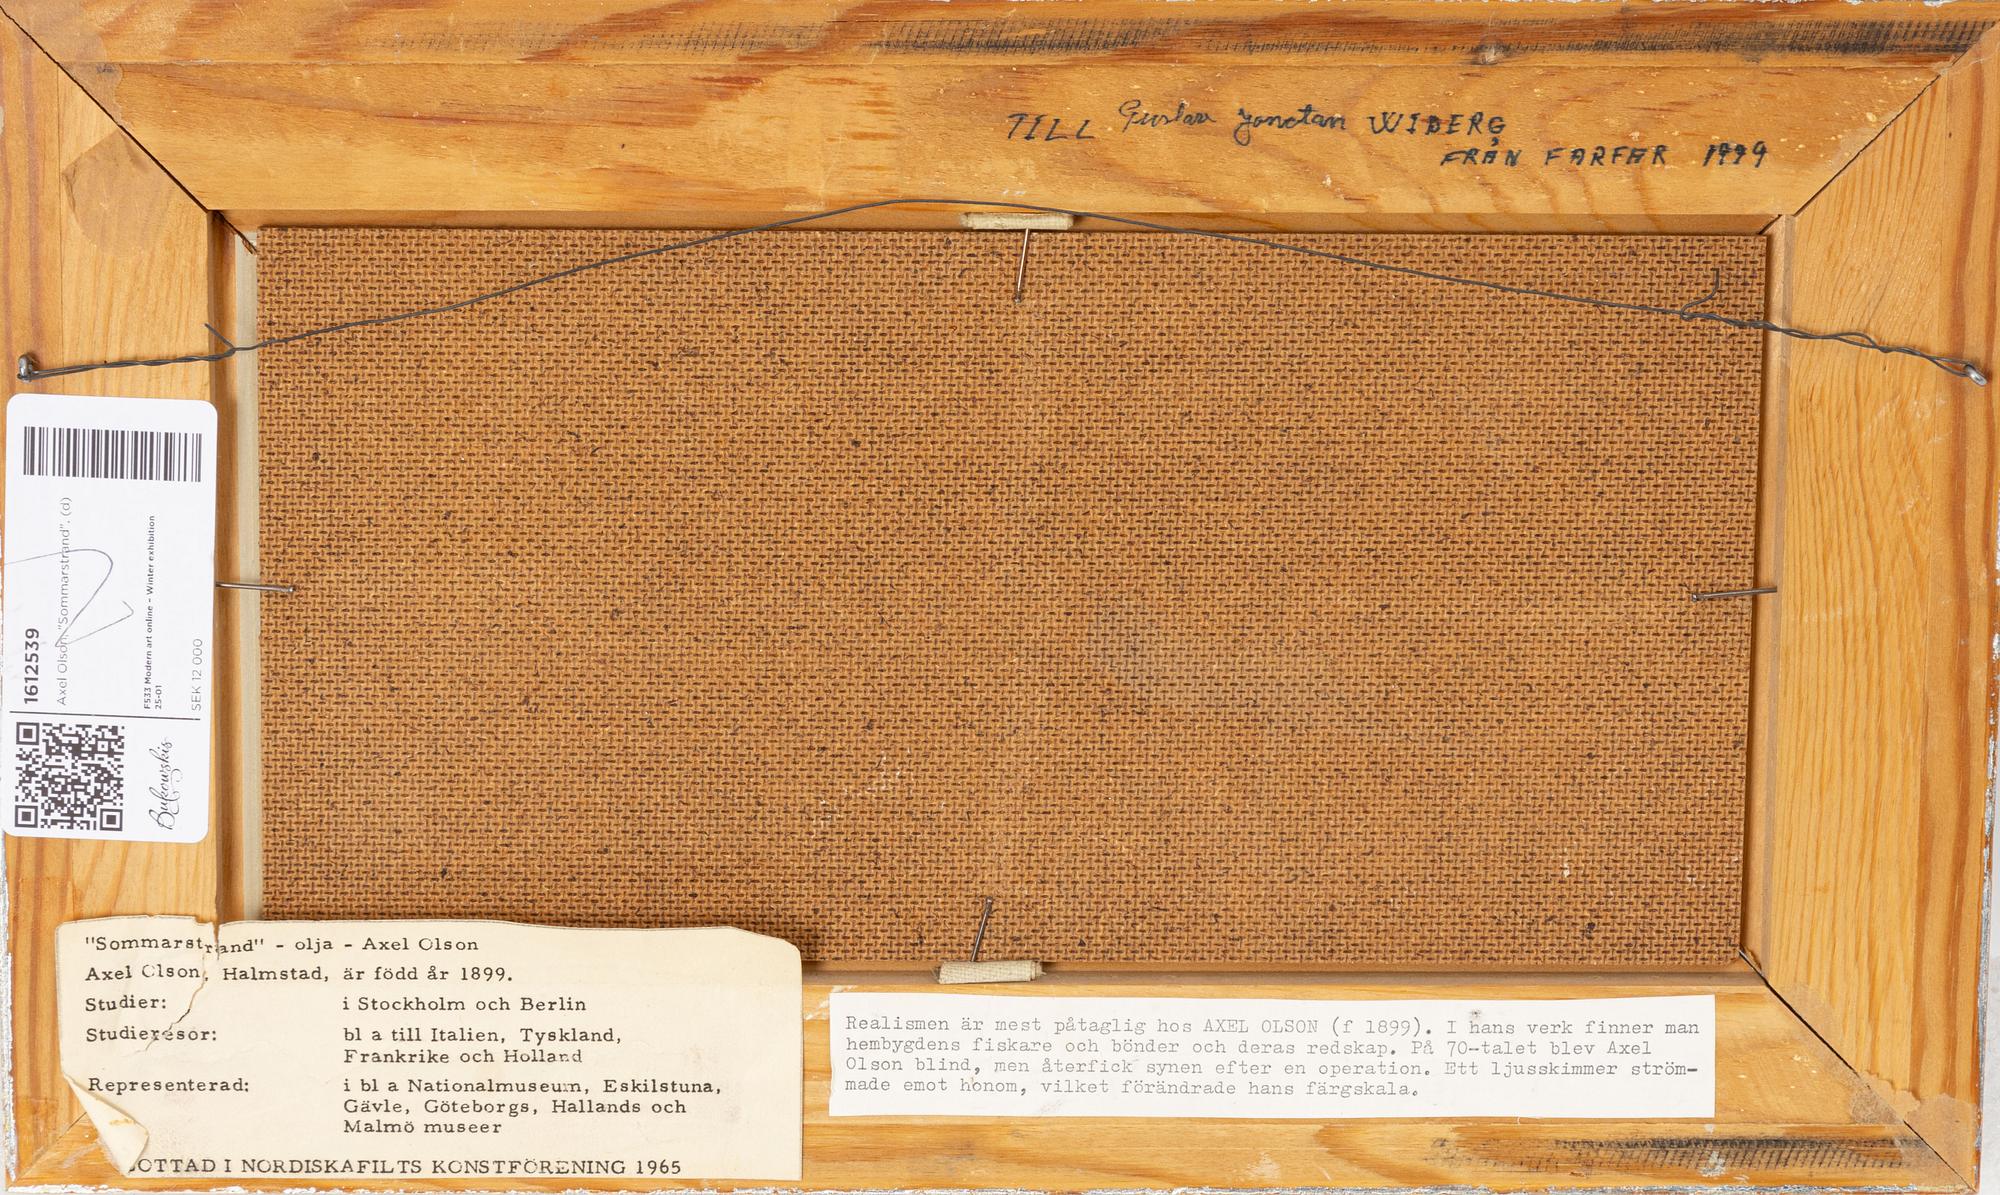 TILL Gustav Jonatan WIBERG
FRÅN FARFAR 1999
1612539
Axel Olson, "Sommarstrand". (d)
F533 Modern art online – Winter exhibition
25-01
SEK 12 000
Bukowskis
"Sommarstrand" - olja - Axel Olson
Axel Olson, Halmstad, är född år 1899.
Studier: i Stockholm och Berlin
Studieresor: bl a till Italien, Tyskland,
Frankrike och Holland
Representerad: i bl a Nationalmuseum, Eskilstuna,
Gävle, Göteborgs, Hallands och
Malmö museer
LOTTAD I NORDISKAFILTS KONSTFÖRENING 1965
Realismen är mest påtaglig hos AXEL OLSON (f 1899). I hans verk finner man
hembygdens fiskare och bönder och deras redskap. På 70-talet blev Axel
Olson blind, men återfick synen efter en operation. Ett ljusskimmer ström-
made emot honom, vilket förändrade hans färgskala.